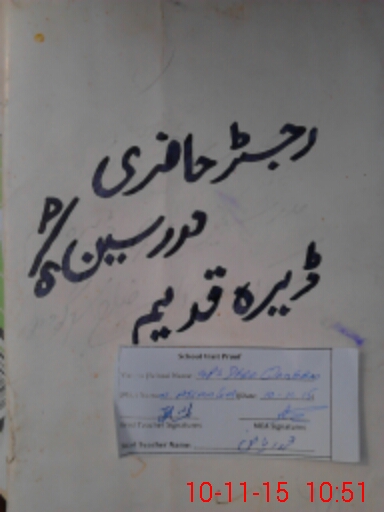 رجسٹر حاضری
مدرسین P/S
ڈیرہ قدیم
School Visit Proof
School Name: GPS Dera
MEA Name: Date: 10-11-15
Head Teacher Signatures MEA Signatures
Head Teacher Name
10-11-15 10:51